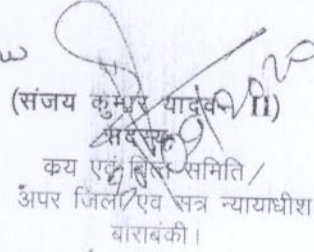 (संजय कुमार यादव- II)
सदस्य
कय एवं वित्त समिति /
अपर जिला एव सत्र न्यायाधीश
बाराबंकी।